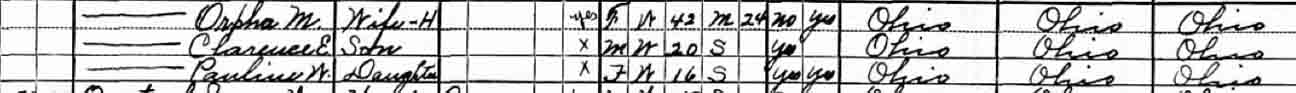 Orpha M. Wife-H yes F W 42 M 24 no yes Ohio Ohio Ohio
Clarence E. Son x M W 20 S yes Ohio Ohio Ohio
Pauline W. Daughter x F W 16 S yes yes Ohio Ohio Ohio